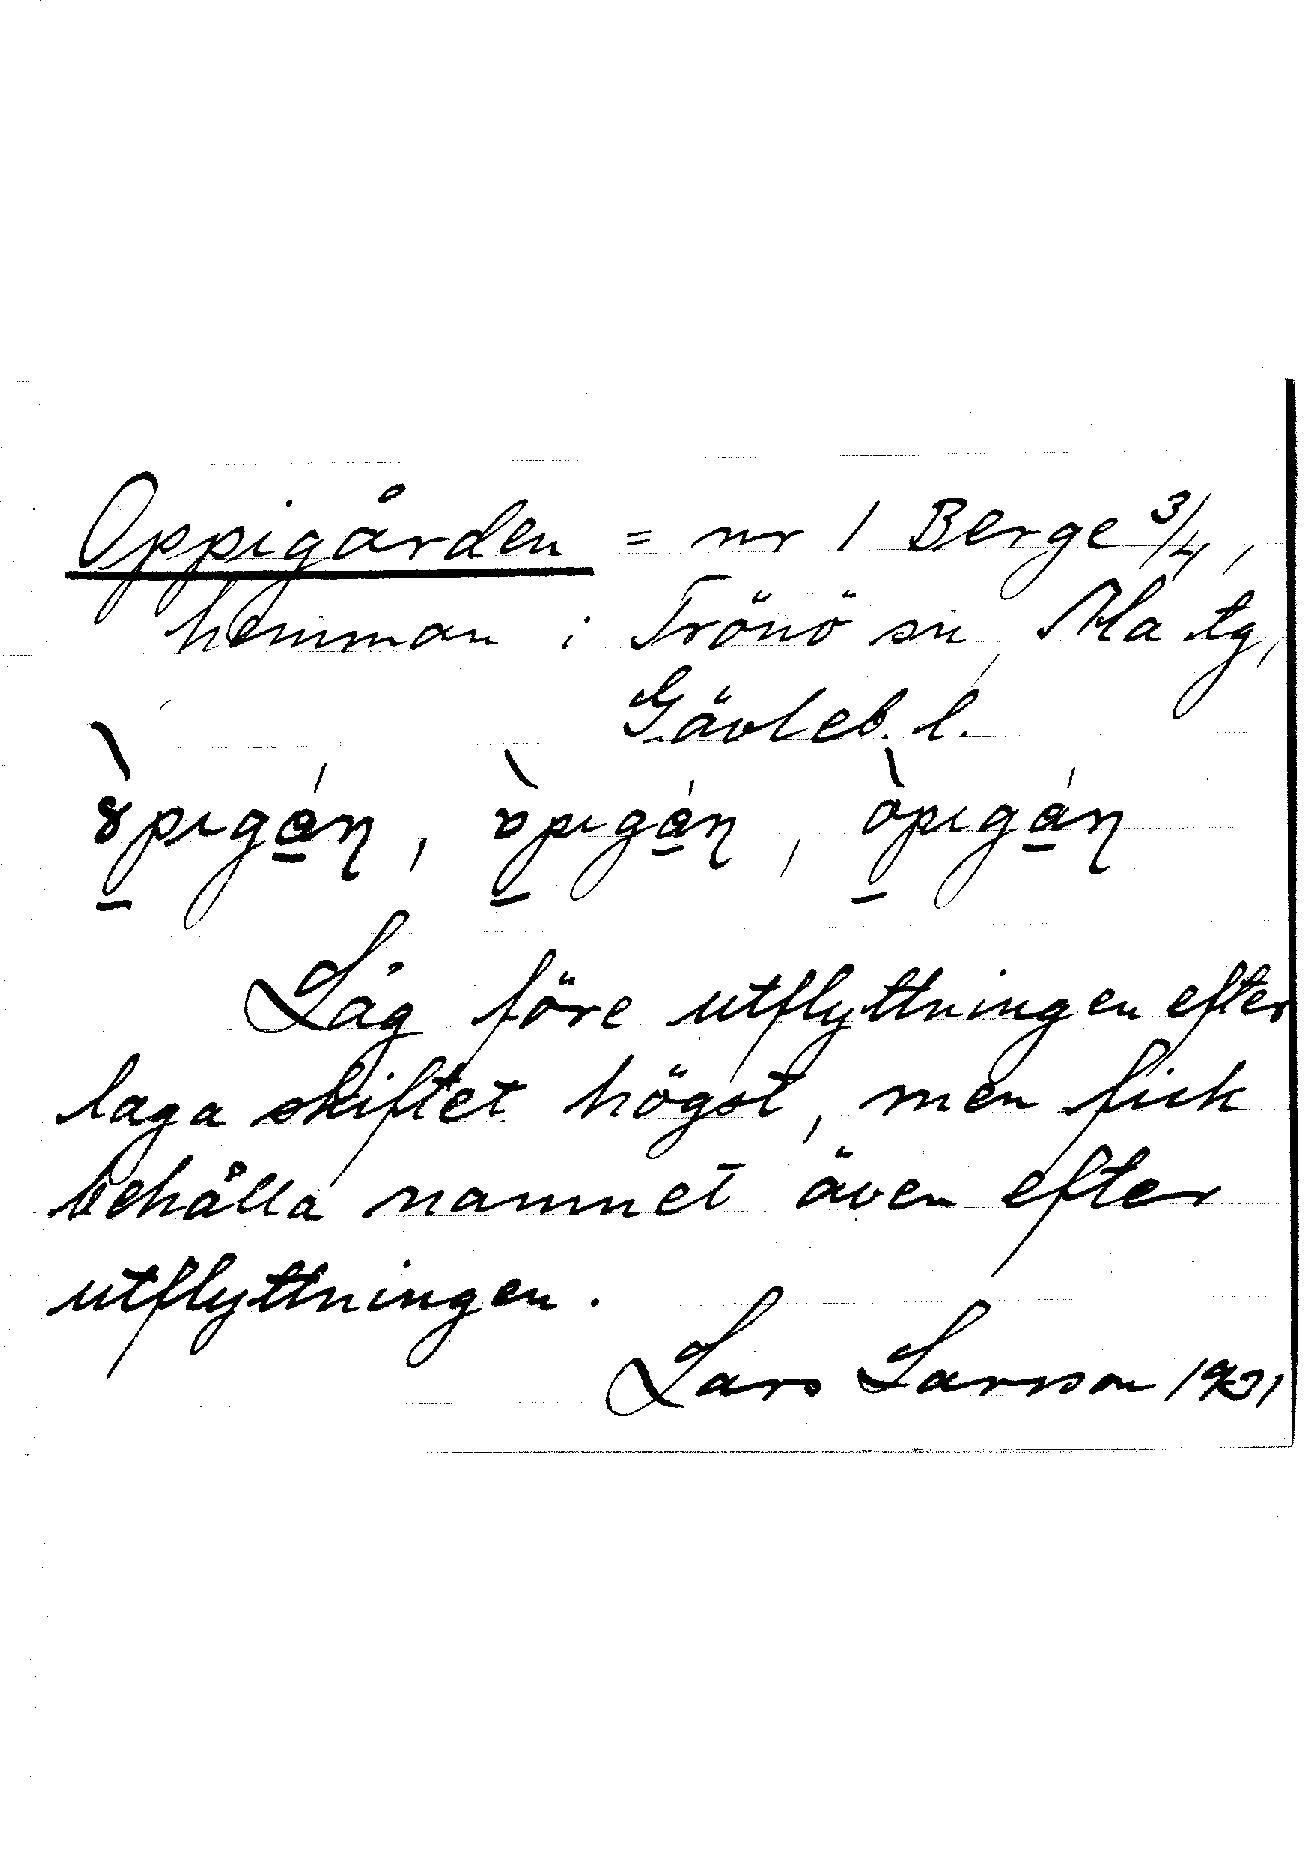 Oppigården = nr 1 Berge 3/4,
hemman i Trönö sn, Ala tg,
Gävleb. l.
Låg före utflyttningen efter
laga skiftet högst, men fick
behålla namnet även efter
utflyttningen.
Lars Larsson 1931